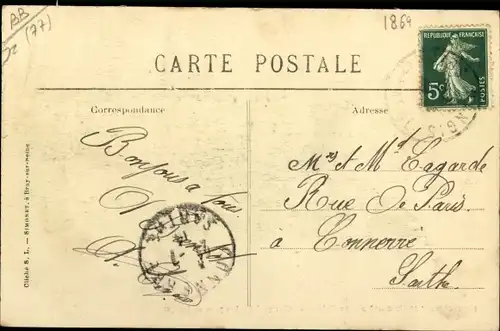 BB
(77)
1869
REPUBLIQUE FRANÇAISE
5c
POSTES
CARTE POSTALE
Correspondance
Adresse
Bonjours à tous
Mr et Md Lagarde
Rue De Paris
à Connerré
Sarthe
SARTHE
Cliché S. L. — SIMONET, à Bray-sur-Seine